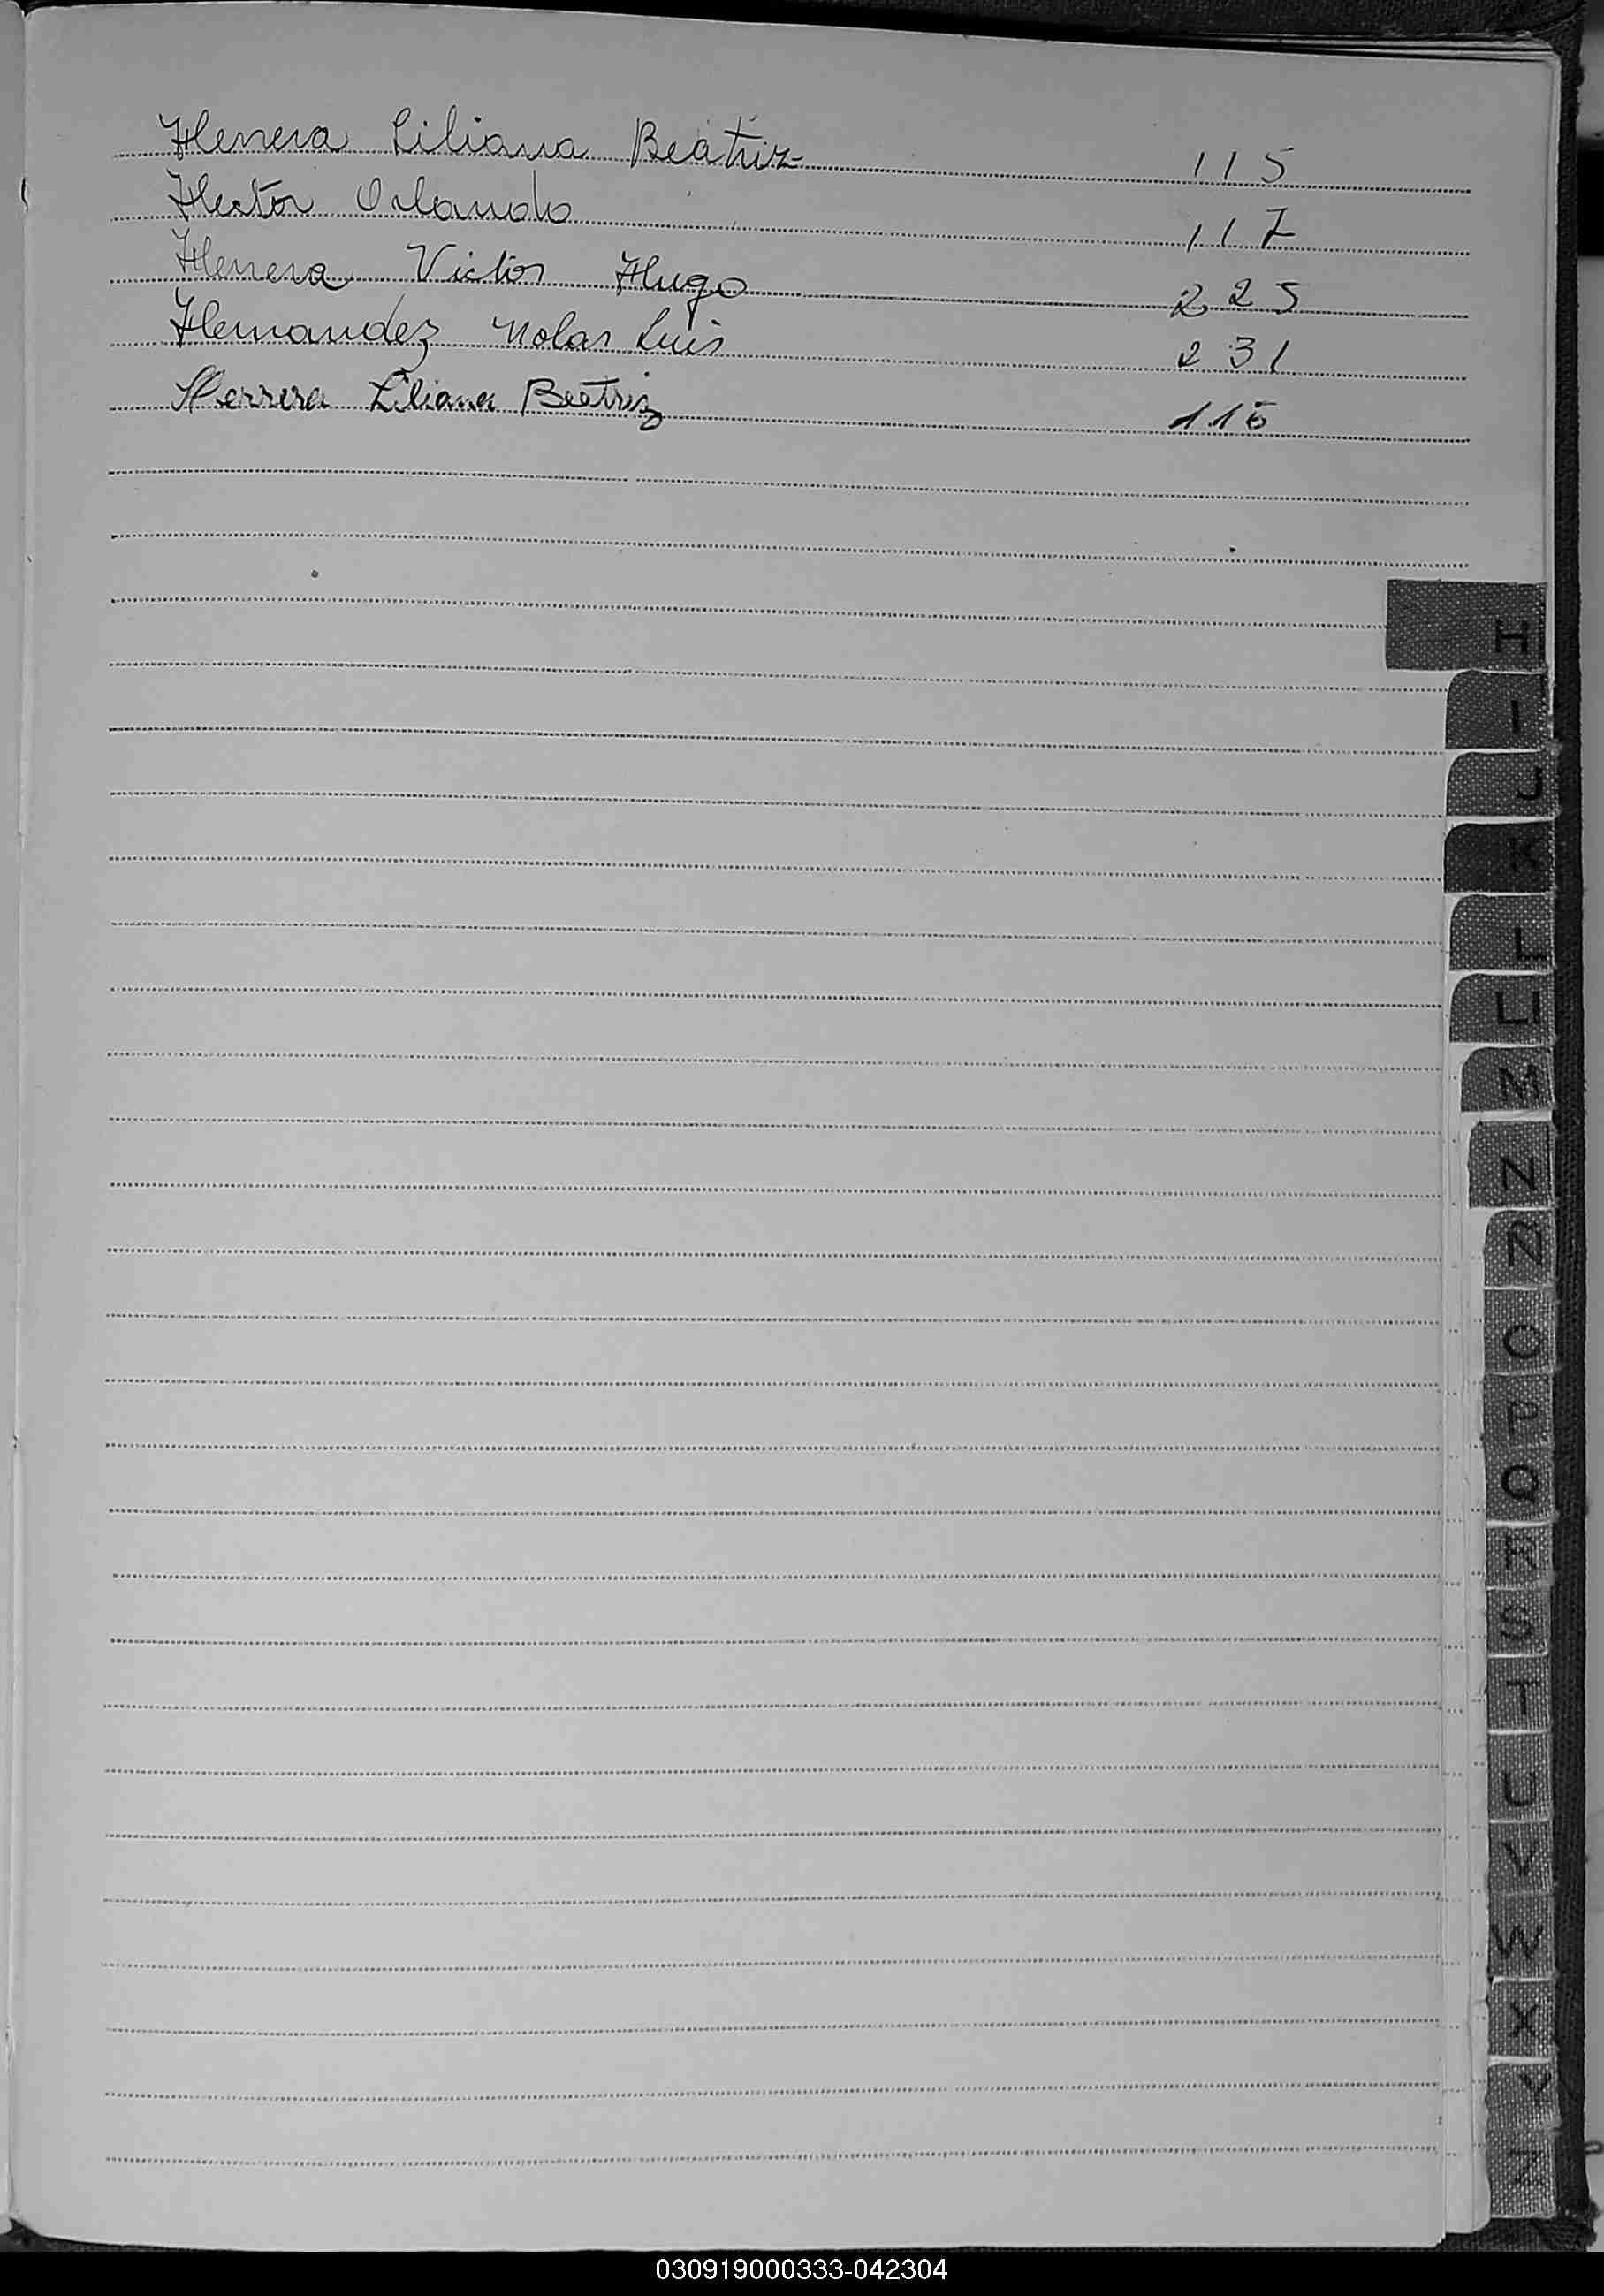 Herrera Liliana Beatriz 115
Hector Orlando 117
Herrera Victor Hugo 225
Hernandez Nolas Luis 231
Herrera Liliana Beatriz 115
H
I
J
K
L
LL
M
N
Ñ
O
P
Q
R
S
T
U
V
W
X
Y
Z
030919000333-042304